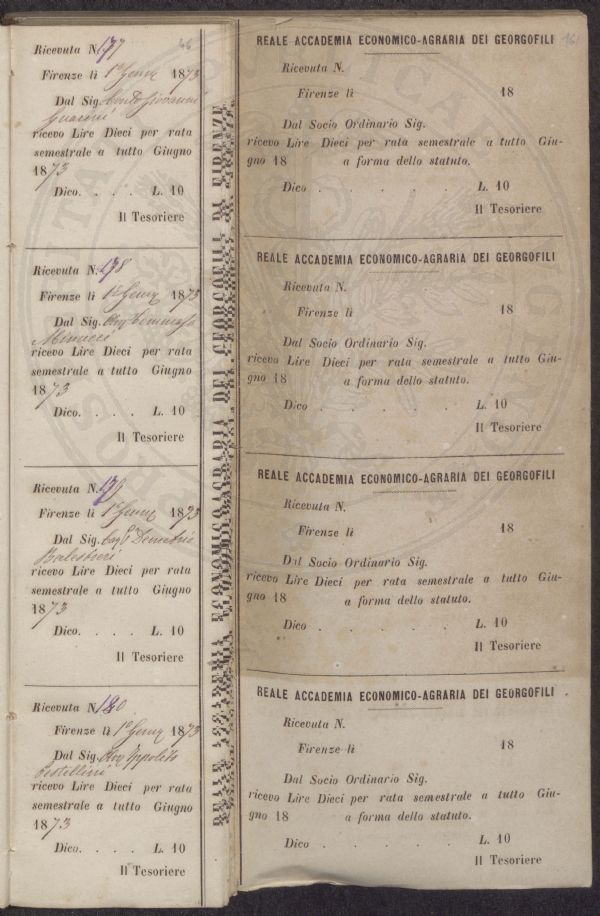 46
Ricevuta N. 177
Firenze li 1° Genn 1873
Dal Sig. Conte Giovanni
Guarini
ricevo Lire Dieci per rata
semestrale a tutto Giugno
1873
Dico. . . . L. 10
Il Tesoriere
Ricevuta N. 178
Firenze li 1° Genn 1873
Dal Sig. Avv Tommaso
Minucci
ricevo Lire Dieci per rata
semestrale a tutto Giugno
1873
Dico. . . . L. 10
Il Tesoriere
Ricevuta N. 179
Firenze li 1° Genn 1873
Dal Sig. Demetrio
Balestrieri
ricevo Lire Dieci per rata
semestrale a tutto Giugno
1873
Dico. . . . L. 10
Il Tesoriere
Ricevuta N. 180
Firenze li 1° Genn 1873
Dal Sig. Avv Ippolito
Pestellini
ricevo Lire Dieci per rata
semestrale a tutto Giugno
1873
Dico. . . . L. 10
Il Tesoriere
REALE ACCADEMIA ECONOMICO-AGRARIA DEI GEORGOFILI DI FIRENZE
161
REALE ACCADEMIA ECONOMICO-AGRARIA DEI GEORGOFILI
Ricevuta N.
Firenze li 18
Dal Socio Ordinario Sig.
ricevo Lire Dieci per rata semestrale a tutto Giu-
gno 18 a forma dello statuto.
Dico . . . . . L. 10
Il Tesoriere
REALE ACCADEMIA ECONOMICO-AGRARIA DEI GEORGOFILI
Ricevuta N.
Firenze li 18
Dal Socio Ordinario Sig.
ricevo Lire Dieci per rata semestrale a tutto Giu-
gno 18 a forma dello statuto.
Dico . . . . . L. 10
Il Tesoriere
REALE ACCADEMIA ECONOMICO-AGRARIA DEI GEORGOFILI
Ricevuta N.
Firenze li 18
Dal Socio Ordinario Sig.
ricevo Lire Dieci per rata semestrale a tutto Giu-
gno 18 a forma dello statuto.
Dico . . . . . L. 10
Il Tesoriere
REALE ACCADEMIA ECONOMICO-AGRARIA DEI GEORGOFILI
Ricevuta N.
Firenze li 18
Dal Socio Ordinario Sig.
ricevo Lire Dieci per rata semestrale a tutto Giu-
gno 18 a forma dello statuto.
Dico . . . . . L. 10
Il Tesoriere